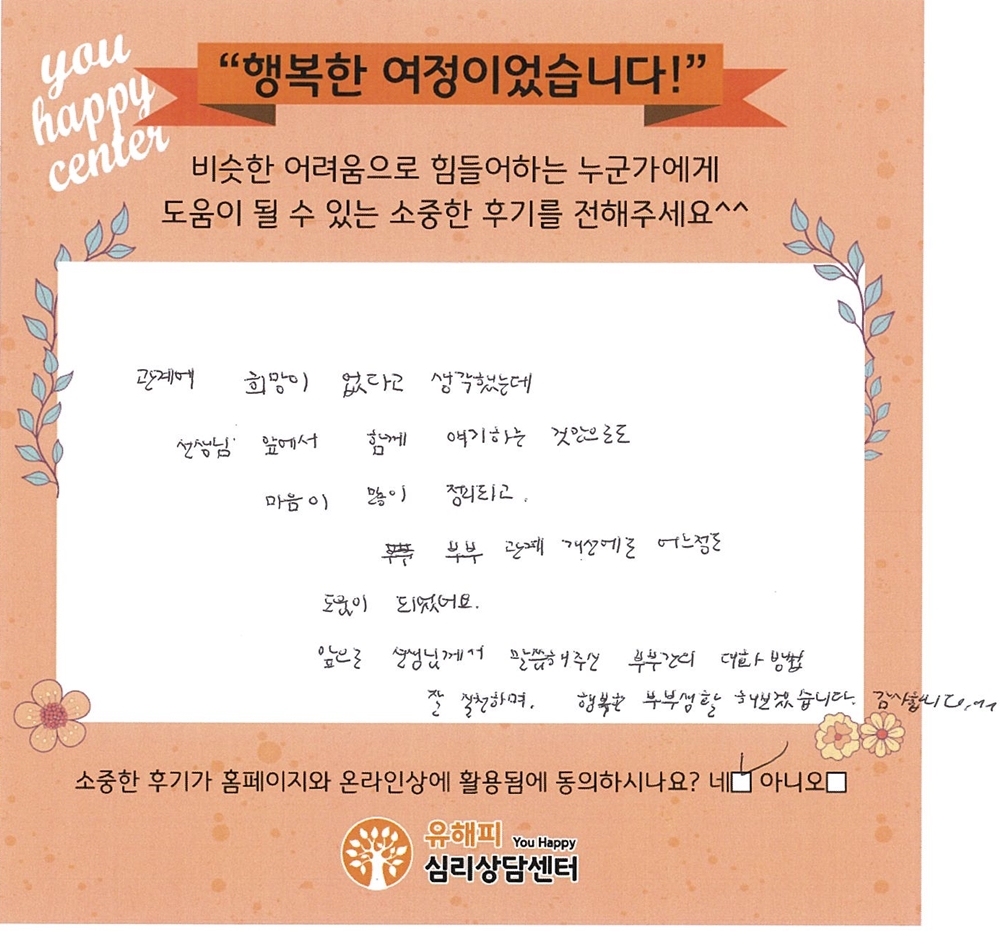 you
happy
center
“행복한 여정이었습니다!”
비슷한 어려움으로 힘들어하는 누군가에게
도움이 될 수 있는 소중한 후기를 전해주세요^^
관계에 희망이 없다고 생각했는데
선생님 앞에서 함께 얘기하는 것만으로도
마음이 많이 정리되고.
부부 관계 개선에도 어느정도
도움이 되었어요.
앞으로 선생님께서 말씀해주신 부부간의 대화 방법
잘 실천하며. 행복한 부부생활 해보겠습니다. 감사합니다.
소중한 후기가 홈페이지와 온라인상에 활용됨에 동의하시나요? 네 아니오
유해피 You Happy
심리상담센터